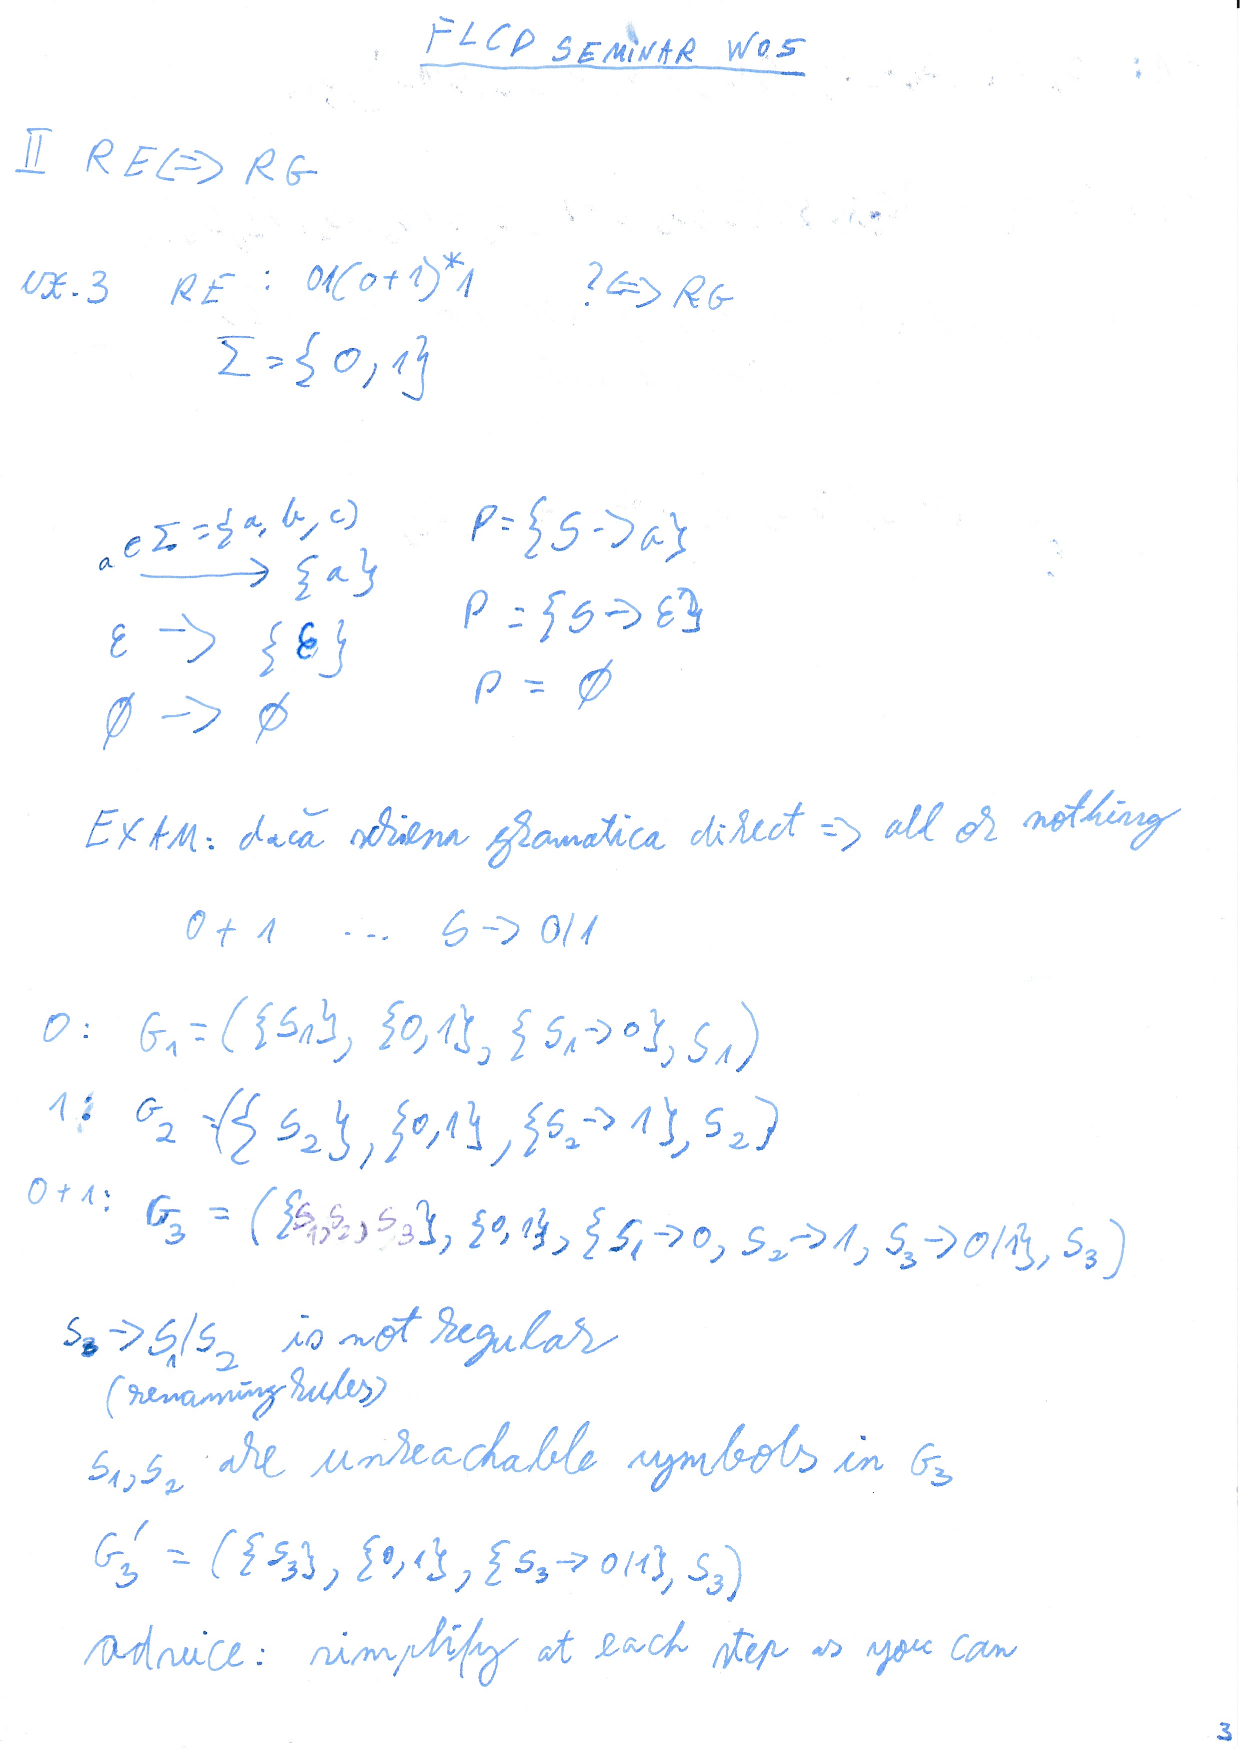 FLCD SEMINAR W05
II RE<=> RG
ex.3 RE : 01(0+1)*1 ?<=> RG
Σ={0,1}
a∈Σ={a,b,c} P={S->a}
-> {a}
ε -> {ε} P={S->ε}
∅ -> ∅ P = ∅
EXAM: dacă scriem gramatica direct => all or nothing
0+1 ... S->0|1
0: G₁=({S₁}, {0,1}, {S₁->0}, S₁)
1: G₂=({S₂}, {0,1}, {S₂->1}, S₂)
0+1: G₃ = ({S₁,S₂,S₃}, {0,1}, {S₁->0, S₂->1, S₃->0|1}, S₃)
S₃->S₁|S₂ is not regular
(renaming rules)
S₁,S₂ are unreachable symbols in G₃
G₃' = ({S₃}, {0,1}, {S₃->0|1}, S₃)
advice: simplify at each step as you can
3